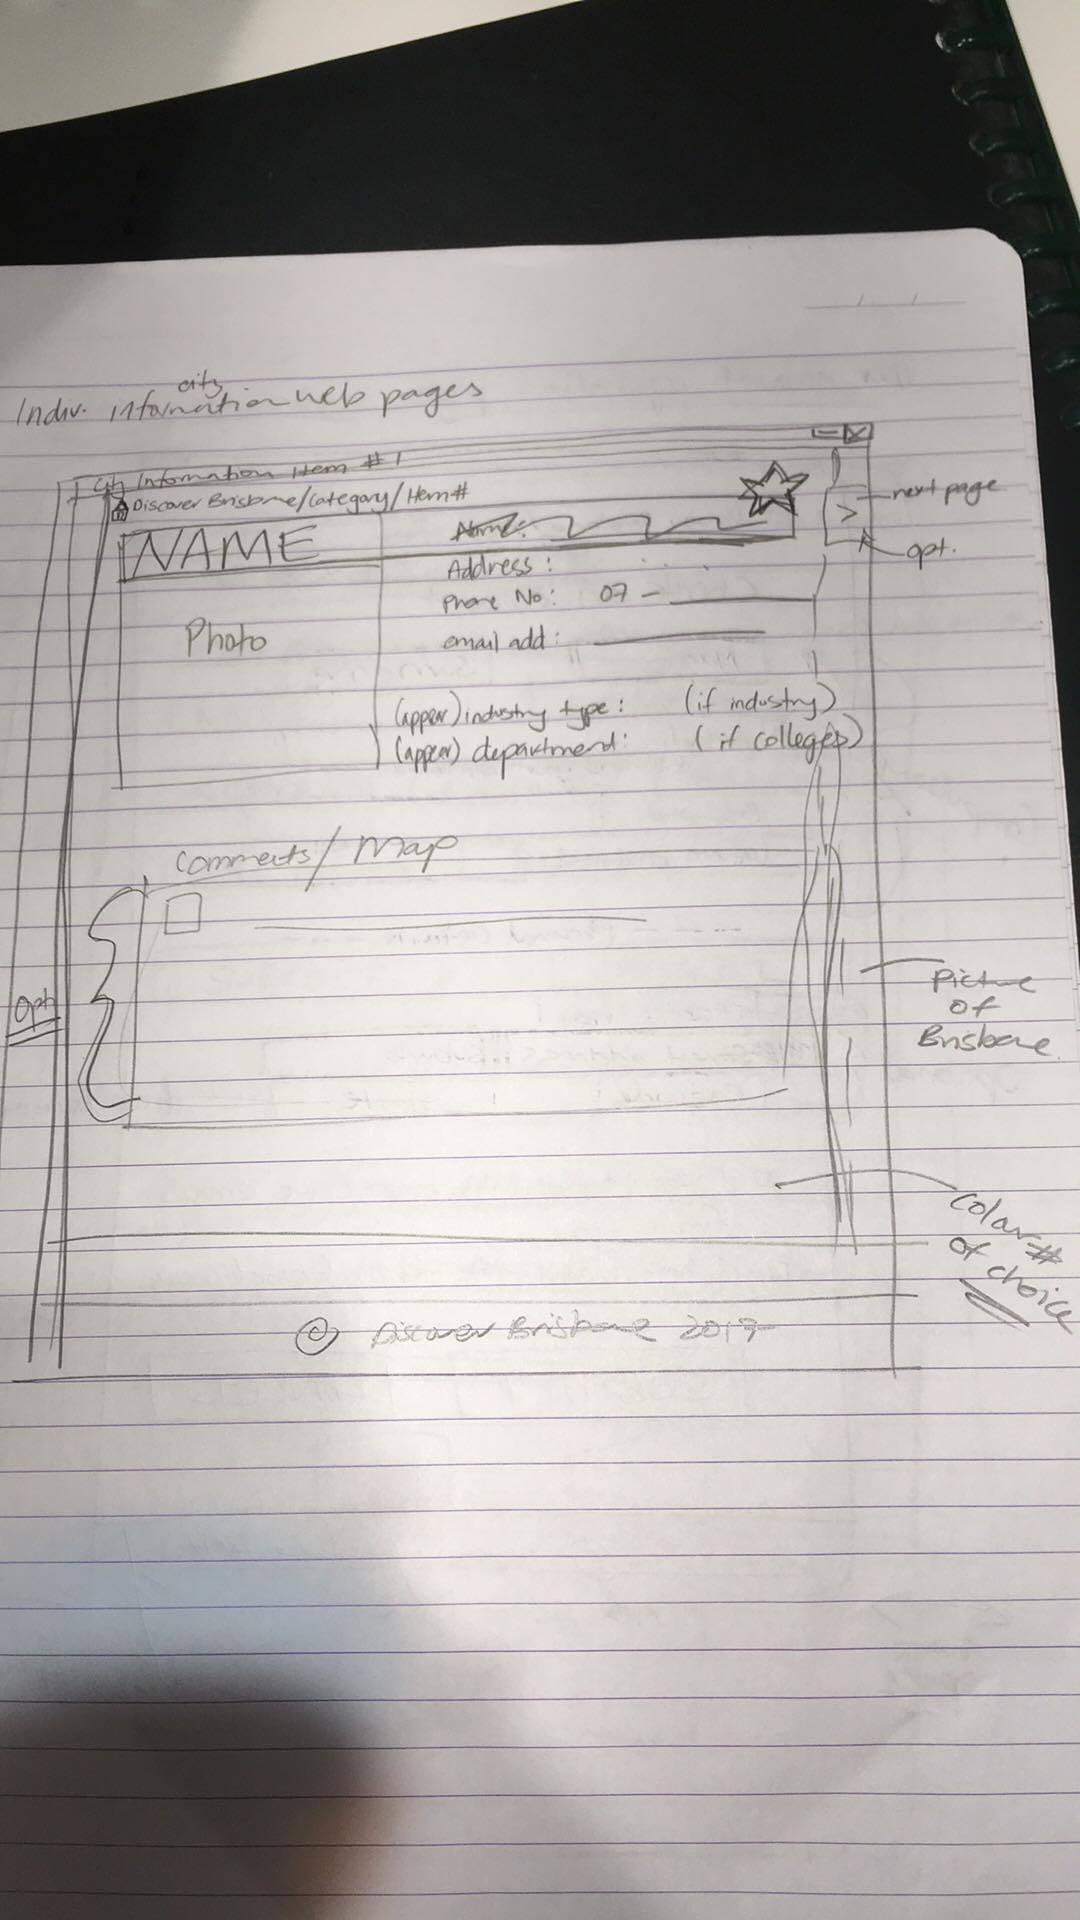 Indiv. information web pages
city
City Information Item #1
Discover Brisbane/Category/Item#
NAME
Name:
next page
>
opt.
Address :
Phone No: 07 -
Photo
email add :
(appear) industry type : (if industry)
(appear) department : (if colleges)
Comments/ Map
opt
Picture
of
Brisbane
Colour#
of choice
© Discover Brisbane 2017